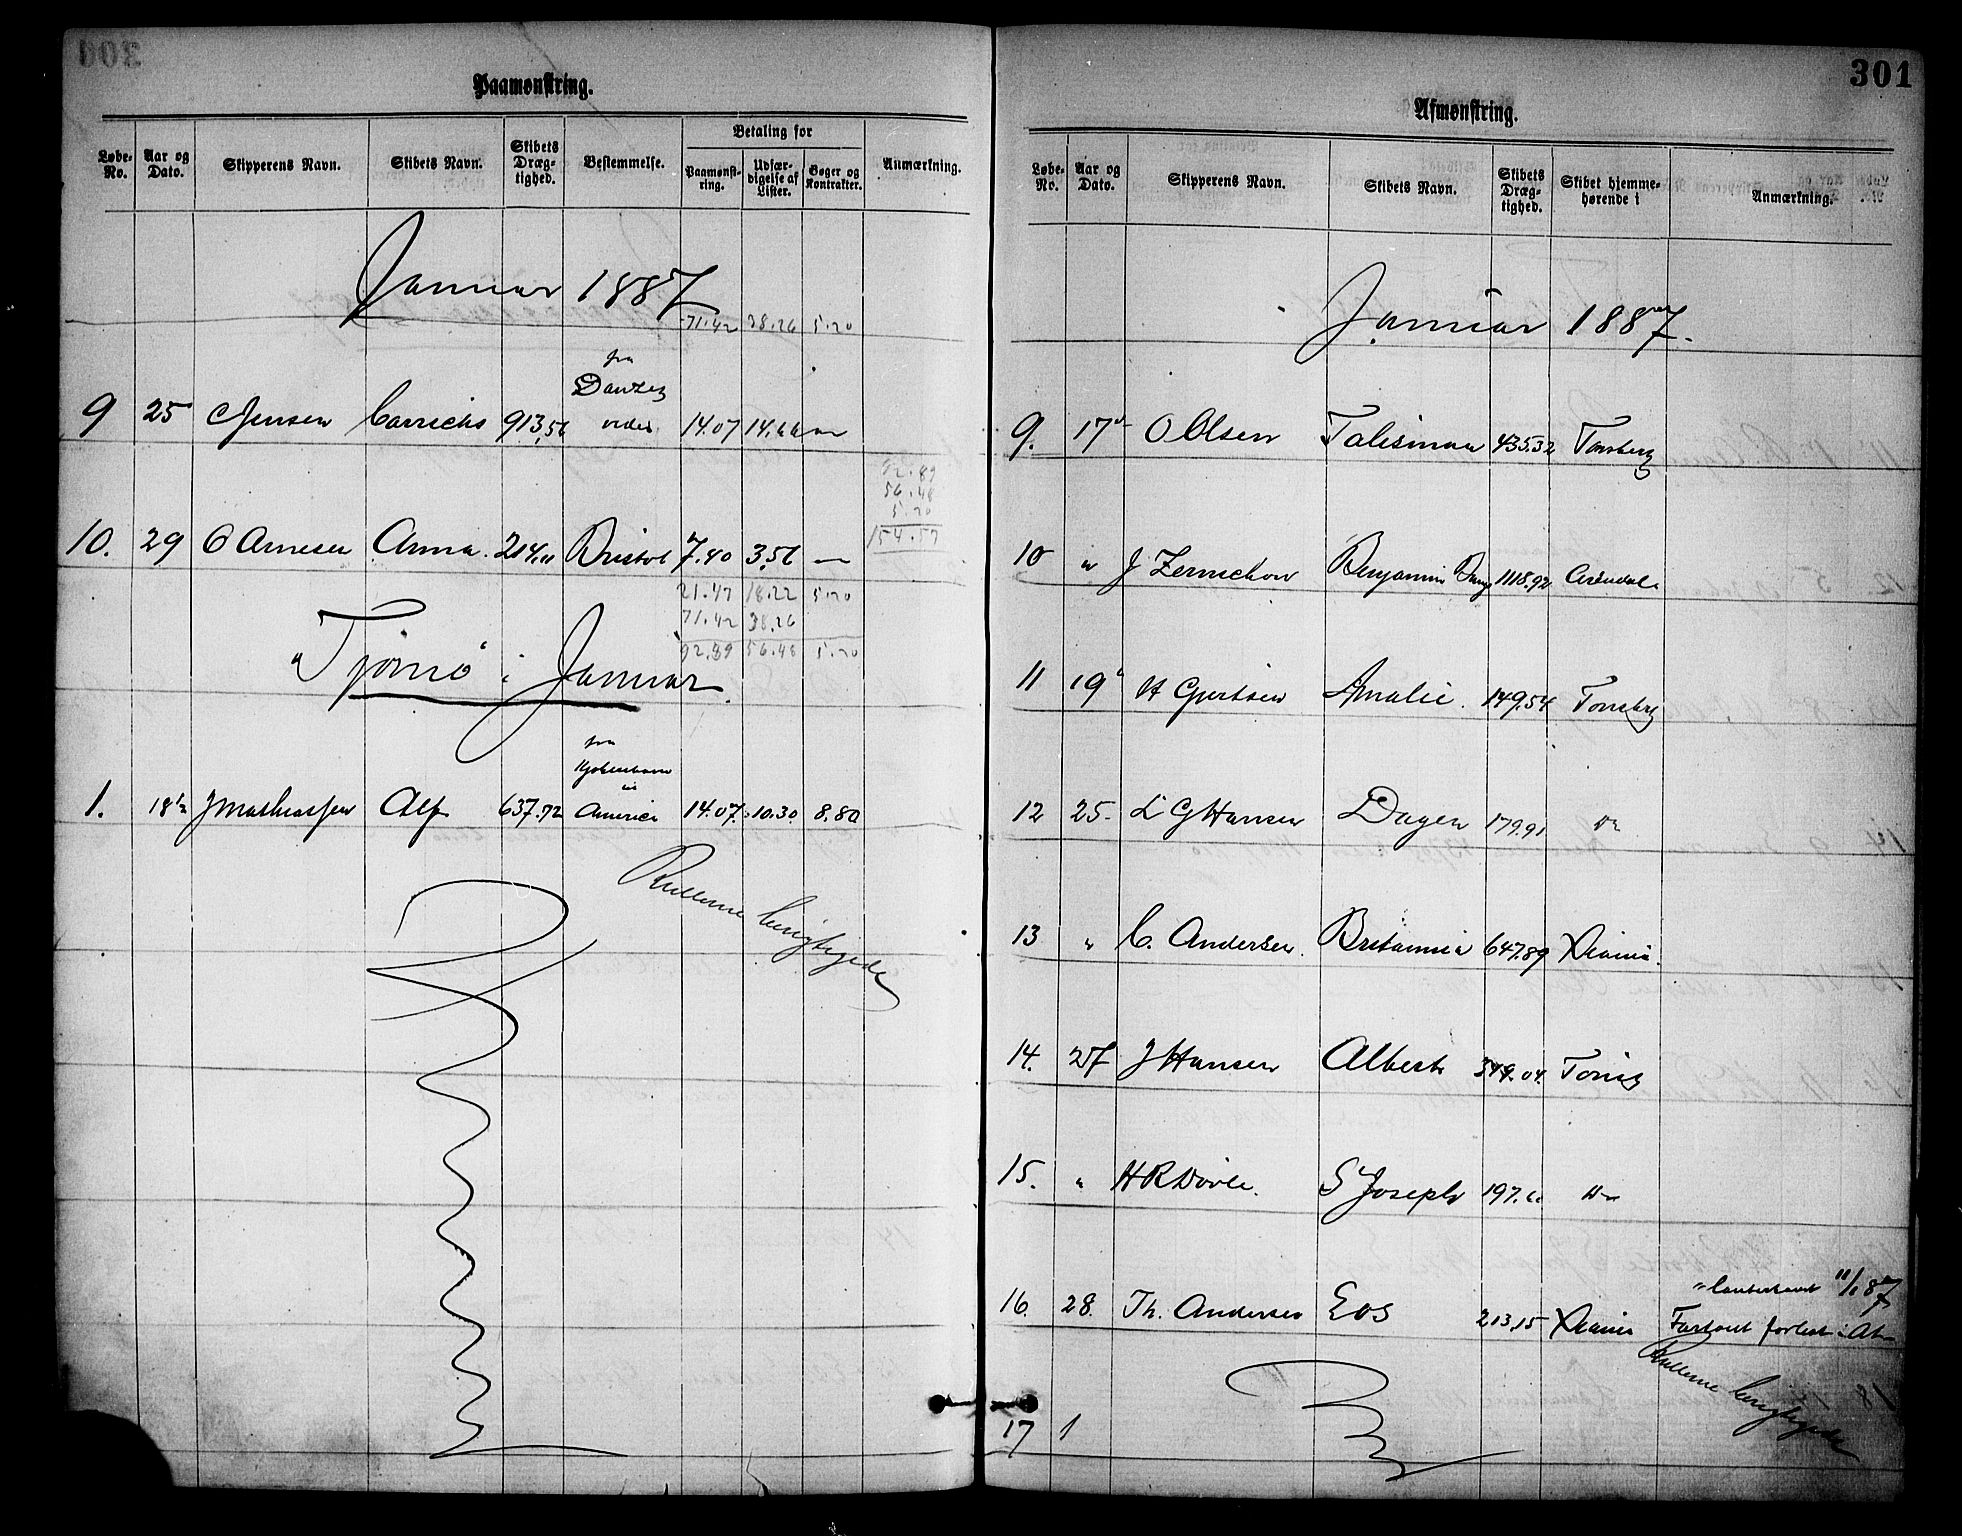 Paamønstring.
Løbe-No. Aar og Dato. Skipperens Navn. Skibets Navn. Skibets Dræg-tighed. Bestemmelse. Betaling for Paamønst-ring. Udfær-digelse af Lister. Bøger og Kontrakter. Anmærkning.
Januar 1887
71.42 38.26 5.20
fra
Danzig
9 25 C Jensen 913,56 videre 14.07
92.89
56.48
5.20
154.57
10. 29 O Arnesen Anna. 214, Bristol 7.40 3,56 —
21.47 18.22 5.20
71.42 38.26
92.89 56.48 5.20
"Tjömö" i Januar.
fra
Kjøbenhavn
til
1. 18 J Mathiassen Alf 637.72 America 14.07 10.30 8.80
Rullerne berigtigede
301
Afmønstring.
Løbe-No. Aar og Dato. Skipperens Navn. Skibets Navn. Skibets Dræg-tighed. Skibet hjemme-hørende i Anmærkning.
Januar 1887.
9. 17 O Olsen Talisman 435.32 Tønsberg
10 " J Zernichow Benjamin Bangs 1118.92 Arendal
11 19 H Gjertsen Amalie 149.54 Tønsberg
12 25 L G Hansen Dagen 179.91 Do
13 " C. Andersen Britannia 647.89 Xiania.
14. 27 J Hansen Albert 349.04 Tönsb
15. " H R Dövle. St Joseph 197. Do
16. 28. Th. Andersen Eos 213,15 Xiania Fartøiet forlist i
87
Rullerne berigtigede
17 1